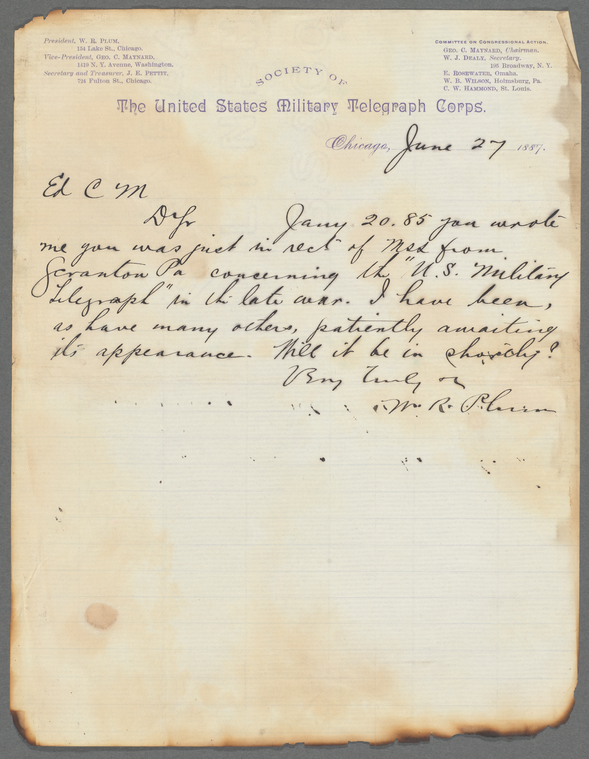 President, W. R. PLUM,
134 Lake St., Chicago.
Vice-President, GEO. C. MAYNARD,
1419 N. Y. Avenue, Washington.
Secretary and Treasurer, J. E. PETTIT,
734 Fulton St., Chicago.
COMMITTEE ON CONGRESSIONAL ACTION.
GEO. C. MAYNARD, Chairman.
W. J. DEALY, Secretary.
195 Broadway, N. Y.
E. ROSEWATER, Omaha.
W. B. WILSON, Holmsburg, Pa.
C. W. HAMMOND, St. Louis.
SOCIETY OF
The United States Military Telegraph Corps.
Chicago, June 27 1887.
Ed C M
D Sr Jany. 20. 85 you wrote
me you was just in rect of Mss from
Scranton Pa concerning the "U.S. Military
Telegraph" in the late war. I have been,
as have many others, patiently awaiting
its appearance. Will it be in shortly?
Very Truly
Wm R. Plum